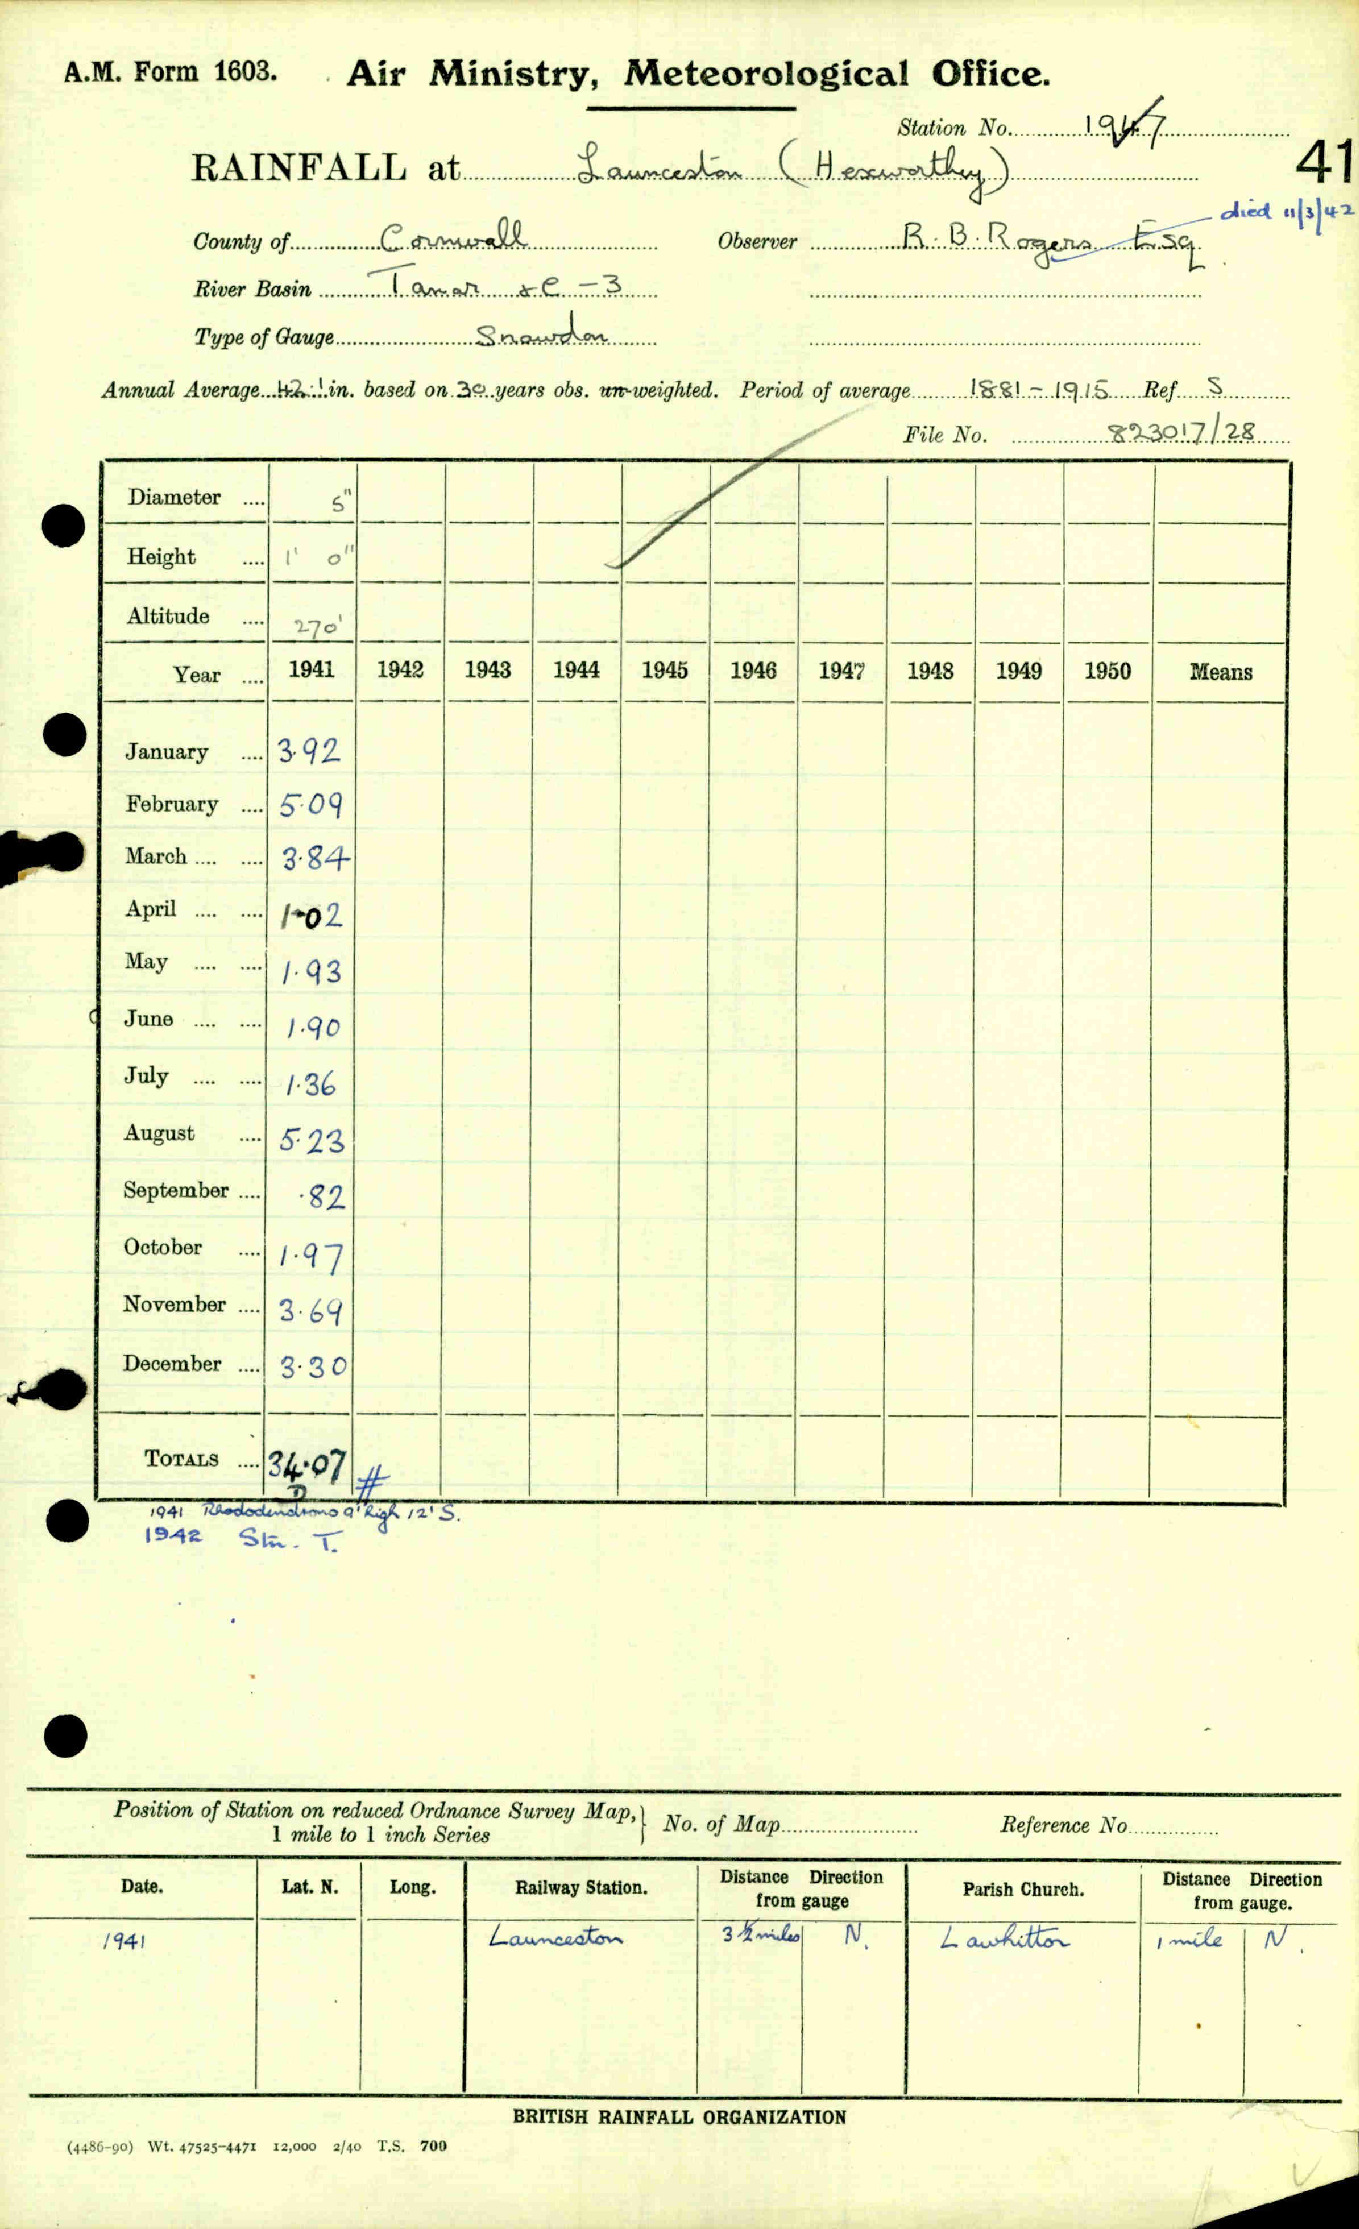 A.M. Form 1603. Air Ministry, Meteorological Office.
Station No. 1947
41
RAINFALL at Launceston (Hexworthy)
died 11/3/42
County of Cornwall Observer R. B. Rogers Esq.
River Basin Tamar &C - 3
Type of Gauge Snowdon
Annual Average 42.1 in. based on 30 years obs. un-weighted. Period of average 1881 - 1915 Ref. S
File No. 823017/28
Diameter .... 5"
Height .... 1' 0"
Altitude .... 270'
Year .... 1941 1942 1943 1944 1945 1946 1947 1948 1949 1950 Means
January .... 3.92
February .... 5.09
March .... .... 3.84
April .... .... 1.02
May .... .... 1.93
June .... .... 1.90
July .... .... 1.36
August .... 5.23
September .... .82
October .... 1.97
November .... 3.69
December .... 3.30
TOTALS .... 34.07 #
1941 Rhododendrons 9' high 12' S.
1942 Stn. T.
Position of Station on reduced Ordnance Survey Map, } No. of Map Reference No.
1 mile to 1 inch Series
Date. Lat. N. Long. Railway Station. Distance Direction from gauge Parish Church. Distance Direction from gauge.
1941 Launceston 3½ miles N. Lawhitton 1 mile N.
BRITISH RAINFALL ORGANIZATION
(4486-90) Wt. 47525-4471 12,000 2/40 T.S. 700